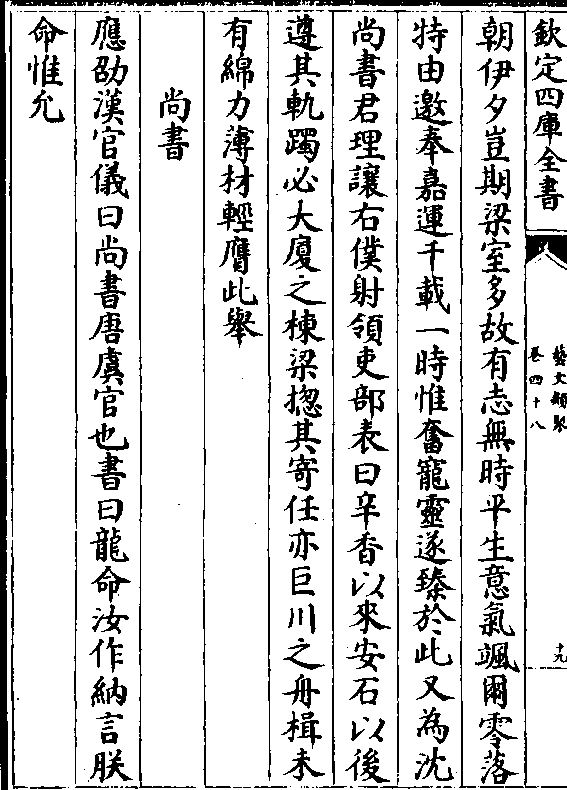 欽定四庫全書
藝文類聚
卷四十八
十九
朝伊夕豈期梁室多故有志無時平生意氣颯爾零落
特由邀奉嘉運千載一時惟奮寵靈遂臻於此又為沈
尚書君理讓右僕射領吏部表曰辛香以來安石以後
遵其軌躅必大廈之棟梁揔其寄任亦巨川之舟楫未
有綿力薄材輕膺此舉
尚書
應劭漢官儀曰尚書唐虞官也書曰龍命汝作納言朕
命惟允